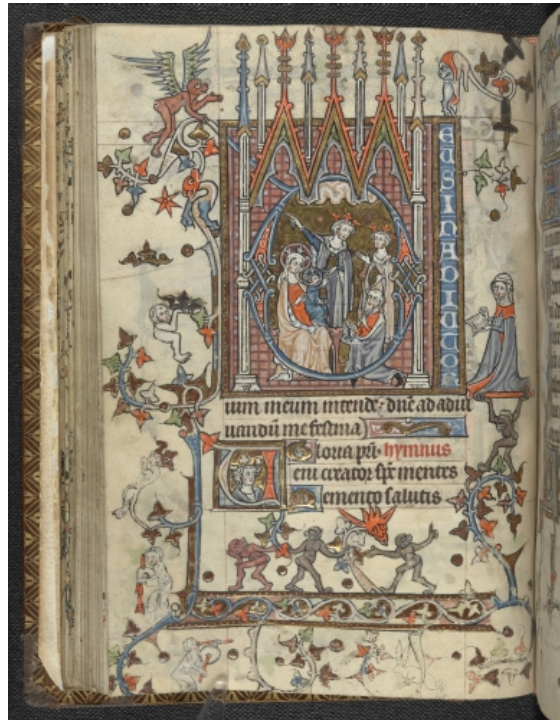 EUS IN ADIUTOR
ium meum intende dne ad adiu
uandū me festina
Gloria pri hymnus
eni creator spc mentes
emento salutis